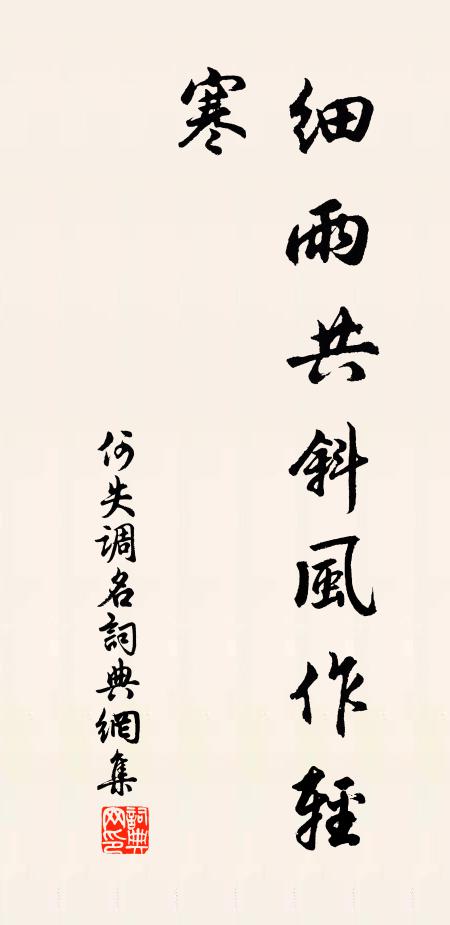 細雨共斜風作輕
寒
何失调名詞典網集
詞典网印